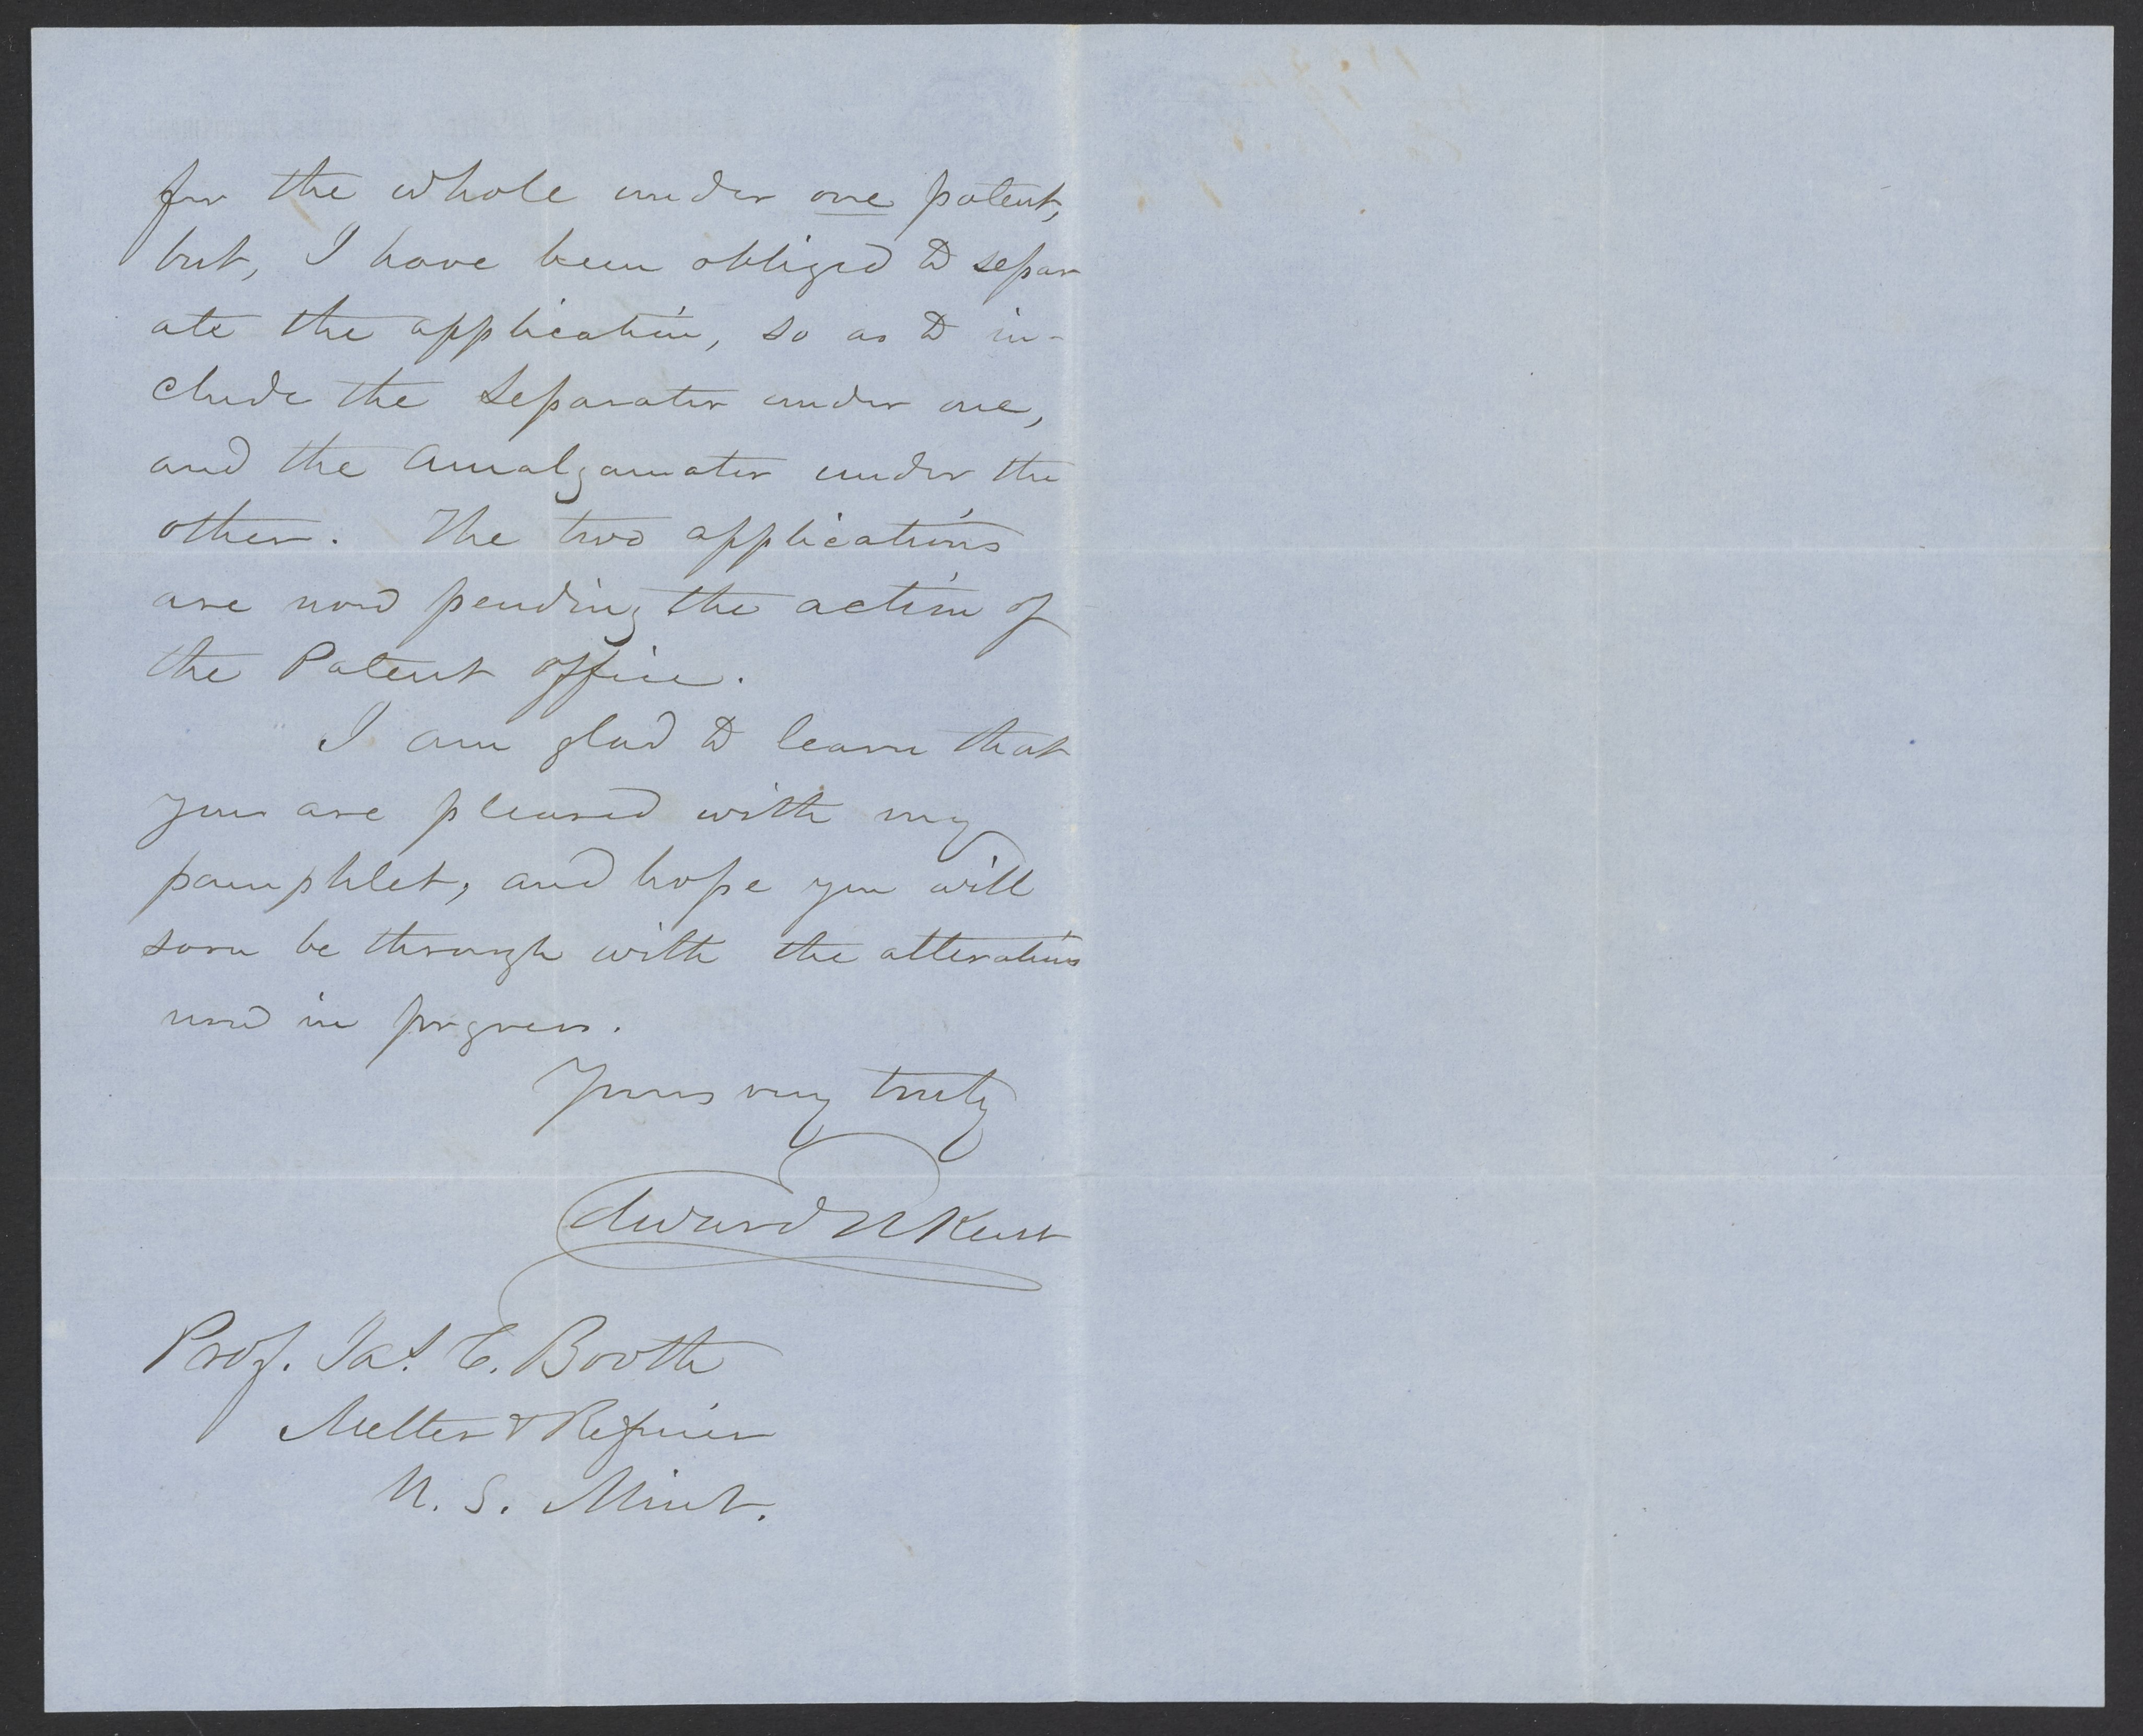 for the whole under one patent,
but, I have been obliged to separ
ate the application, so as to in-
clude the Separater under one,
and the Amalgamater under the
other. The two applications
are now pending the action of
the Patent office.
I am glad to learn that
you are pleased with my
pamphlet, and hope you will
soon be through with the alterations
now in progress.
Yours very truly
Edward N Kent
Prof. Jas. C. Booth
Melter & Refiner
U. S. Mint.